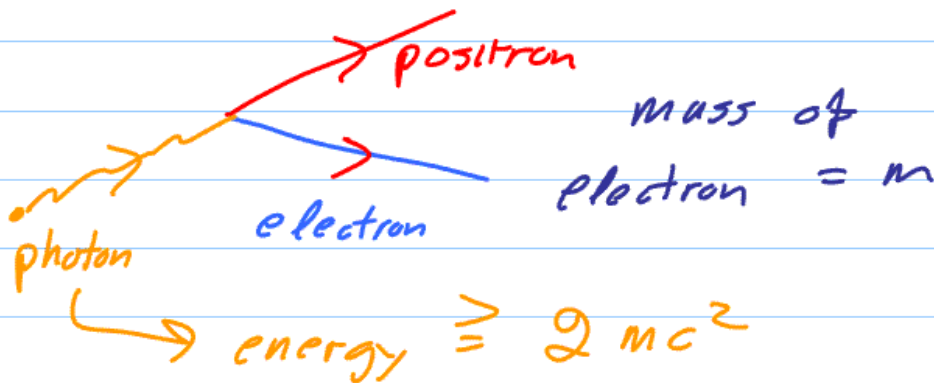 positron
mass of
electron = m
electron
photon
energy ≥ 2mc²